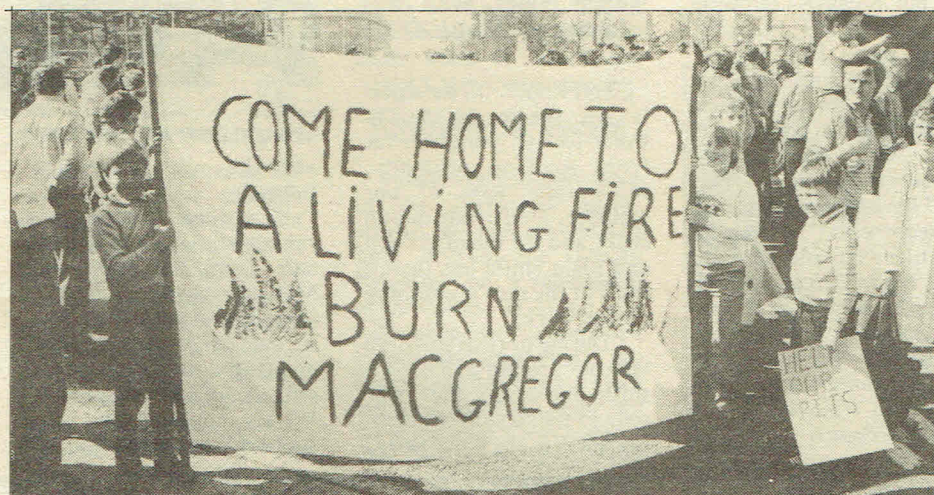 COME HOME TO
A LiViNG FiRE
BURN
MACGREGOR
HELP
OUR
PETS